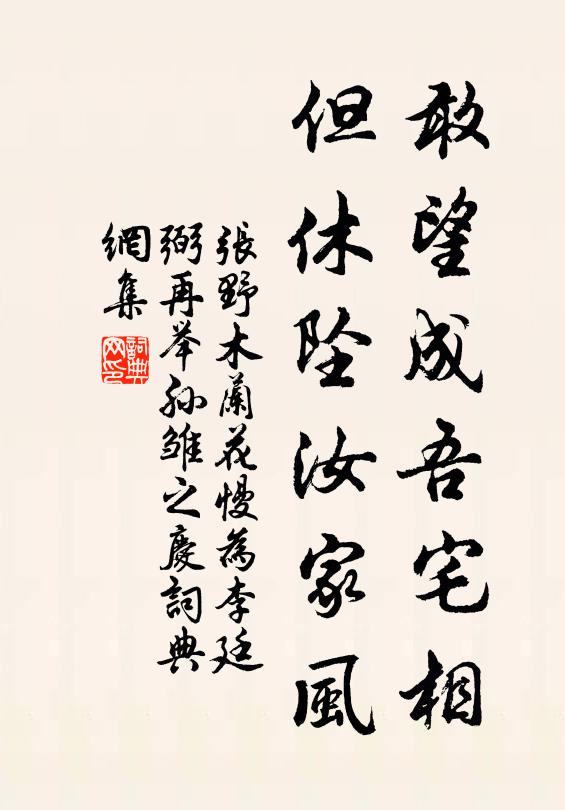 敢望成吾宅相
但休坠汝家風
張野木蘭花慢為李廷
弼再举孙雏之慶詞典
網集
詞典
网印